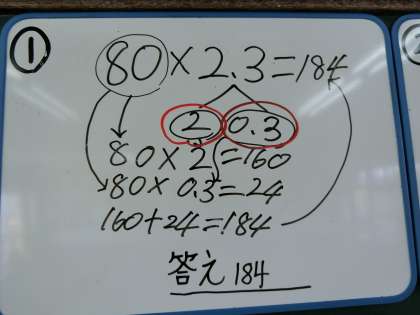 ①
80×2.3=184
2 0.3
80×2=160
80×0.3=24
160+24=184
答え 184